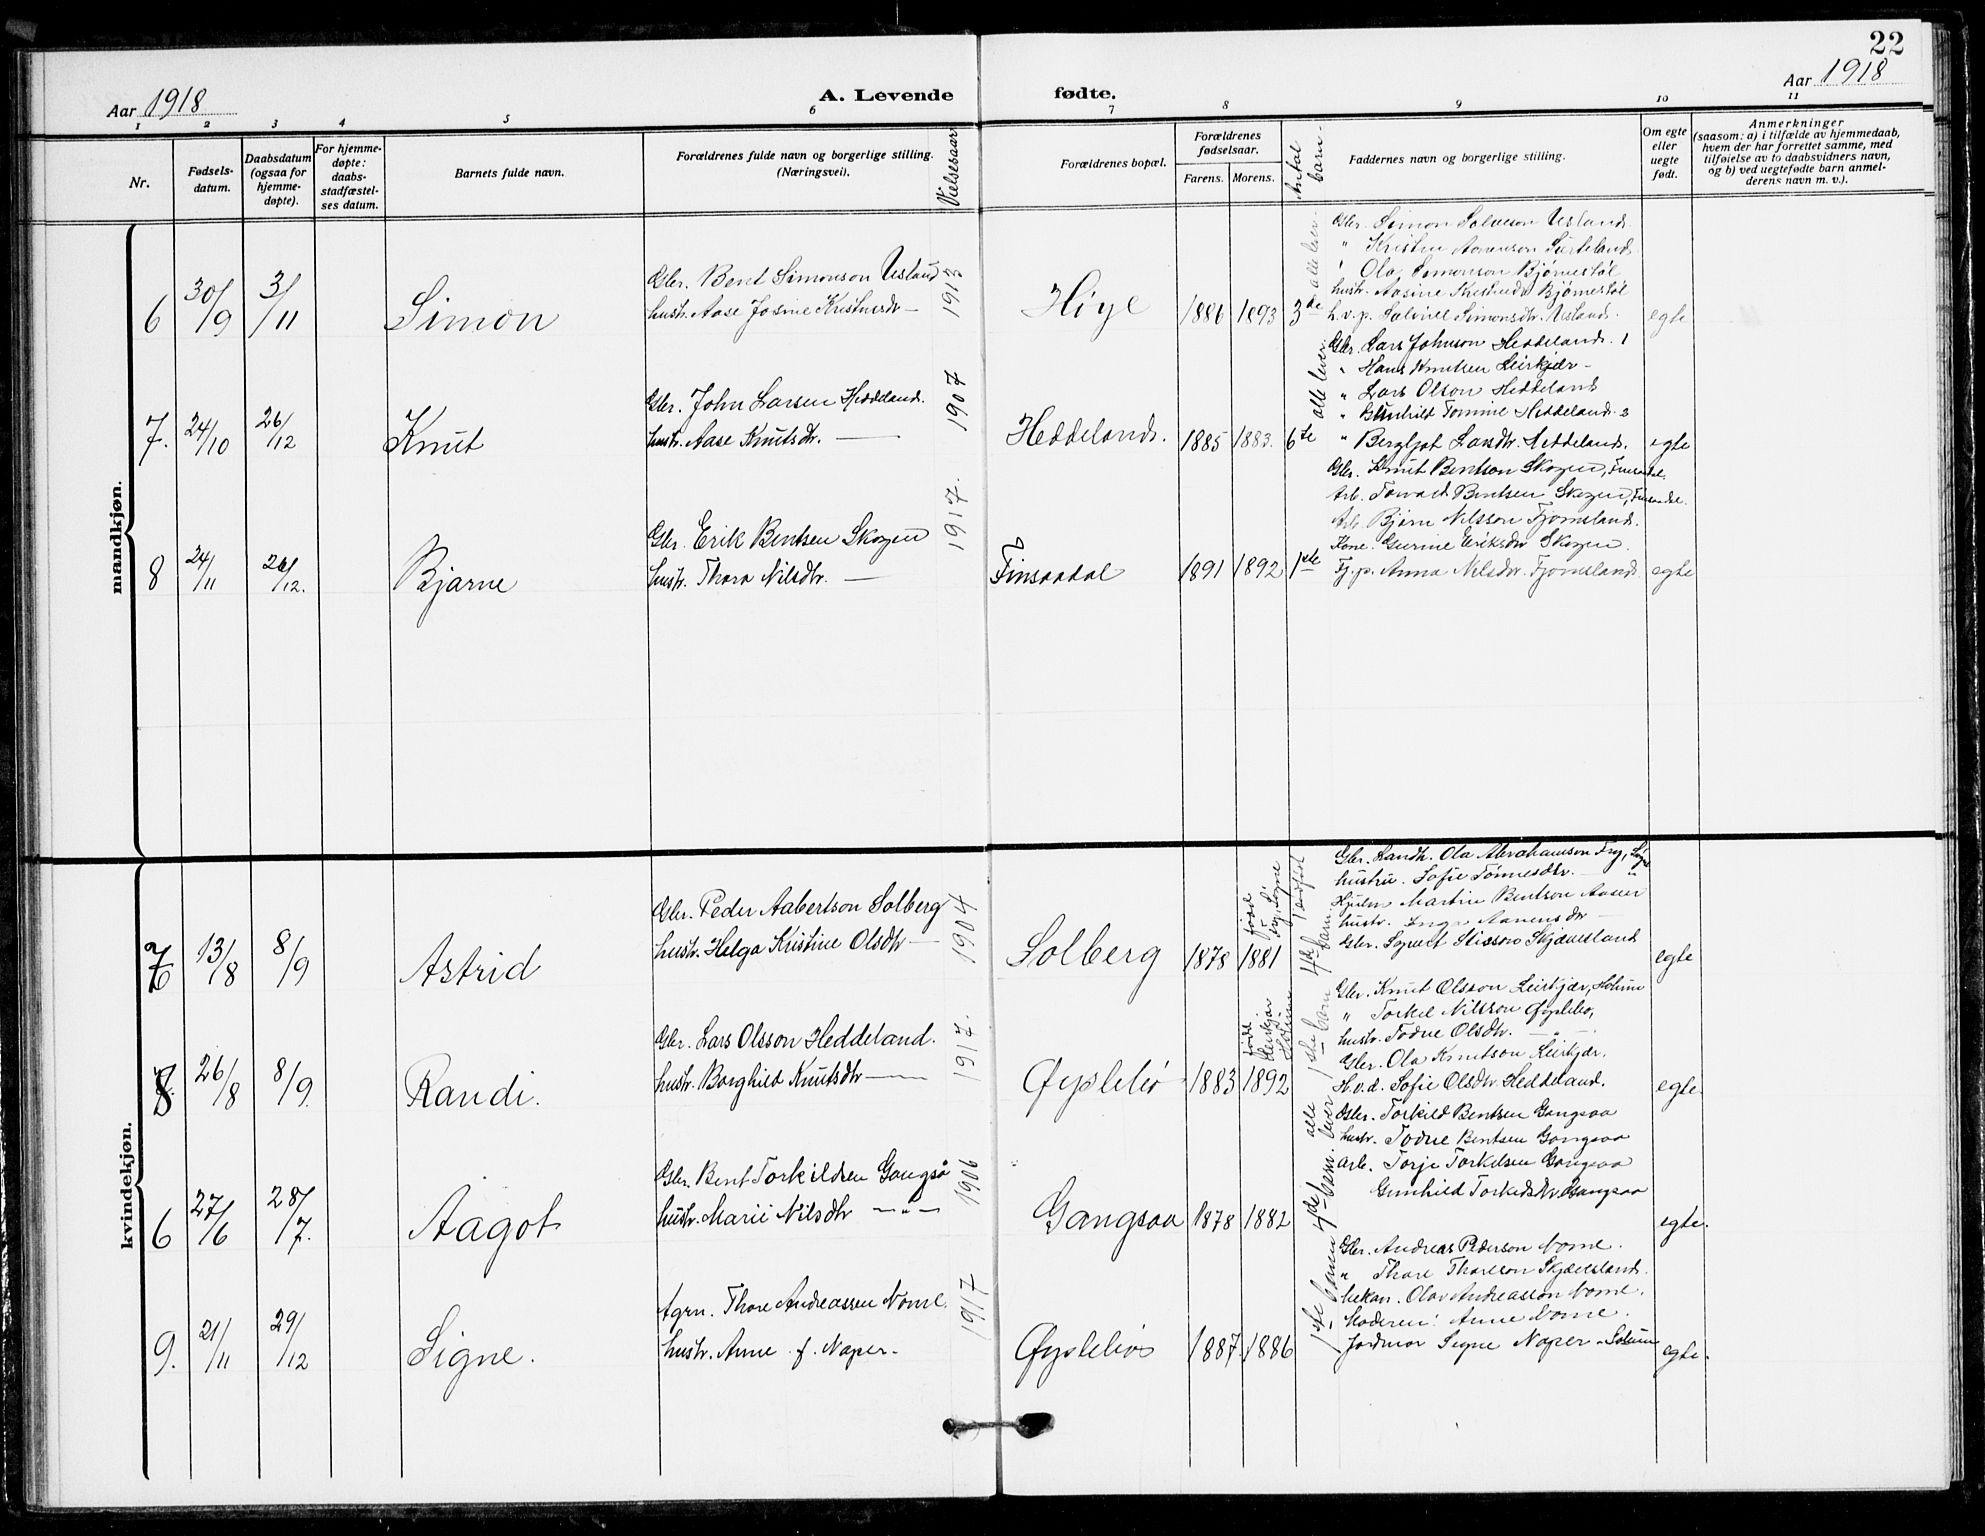 22
Aar 1918
A. Levende
fødte.
Aar 1918
1 2 3 4 5 6 7 8 9 10 11
Nr.
Fødsels-
datum.
Daabsdatum
(ogsaa for
hjemme-
døpte).
For hjemme-
døpte:
daabs-
stadfæstel-
ses datum.
Barnets fulde navn.
Forældrenes fulde navn og borgerlige stilling.
(Næringsvei).
Vielsesaar
Forældrenes bopæl.
Forældrenes
fødselsaar.
Farens. Morens.
Antal
barn.
Faddernes navn og borgerlige stilling.
Om egte
eller
uegte
født.
Anmerkninger
(saasom: a) i tilfælde av hjemmedaab,
hvem der har forrettet samme, med
tilføielse av to daabsvidners navn,
og b) ved uegtefødte barn anmel-
derens navn m. v.).
mandkjøn.
6 30/9 3/11 Simon
Gbr. Bent Simonson Usland
hustr. Aase Josine Kristensdr —
1913
Høye 1886 1893 3de alle lever
Gbr. Simon Salveson Usland
" Kristen Aanenson Surteland
" Ola Simonson Bjørnestøl
hustr. Aasine Kristensdr Bjørnestøl
h.v.p. Salvine Simonsdr. Usland.
egte
7. 24/10 26/12 Knut
Gbr. John Larsen Heddeland.
hustr. Aase Knutsdr. —
1907
Heddeland. 1885 1883. 6te alle lever
Gbr. Lars Johnson Heddeland. 1
" Hans Knutsen Leirkjær -
" Lars Olson Heddeland
" Gunhild Tomine Heddeland. 3
" Bergljot Larsdr. Heddeland.
egte
8 24/11 26/12. Bjarne
Gbr. Erik Bentsen Skogen
hustr. Thora Nilsdtr. —
1917.
Finsaadal 1891 1892 1ste
Gbr. Knut Bentson Skogen, Finsaadal.
Arb. Torvald Bentsen Skogen, Finsaadal.
Arb. Bjørn Nilsson Fjornsland.
Kone. Gurine Eriksdr Skogen.
Tj.p. Anna Nilsdr. Fjomsland.
egte
kvindekjøn.
7 13/8 8/9 Astrid
Gbr. Peder Aabertson Solberg
hustr. Helga Kristine Olsdtr —
1904
Solberg 1878 1881
født Try, Søgne
4de barn. 1 dødfød
Gbr. Landh. Ola Abrahamson Try, Søgne
hustru. Sofie Tønnesdtr. — "
Martin Bentson Aaseer
hustr. Inga Aanensdr —
Gbr. Sigurd Stisson Skjævesland
egte
8 26/8 8/9. Randi.
Gbr. Lars Olsson Heddeland.
hustr. Borghild Knutsdtr —
1917.
Øyslebø 1883 1892
født Leirkjær Holum
1ste barn
Gbr. Knut Olsson Leirkjær, Holum
" Torkel Nilsson Øyslebø,
hustr. Todne Olsdtr. — " —
Gbr. Ola Knutson Leirkjær.
H.v.d. Sofie Olsdtr Heddeland.
egte.
6 27/6 28/7. Aagot
Gbr. Bent Torkildsen Gangså
hustr. Marie Nilsdtr — " —
1906
Gangsaa 1878 1882
4de barn. alle lever
Gbr. Torkild Bentsen Gangsaa
hustr. Todne Bentsen Gangsaa
Arb. Torje Torkelsen Gangsaa
Gunhild Torkildsdtr Gangsaa
egte.
9. 21/11 29/12 Signe.
Agrn. Thore Andreassen Nome.
hustr. Anne f. Naper.
1917
Øyslebø 1887. 1886 1ste barn
Gbr. Andreas Pederson Nome.
" Thore Thorsson Skjævesland.
Mekan. Olav Andreasson Nome.
Moderen: Anne Nome.
Jordmor Signe Naper - Holum
egte.